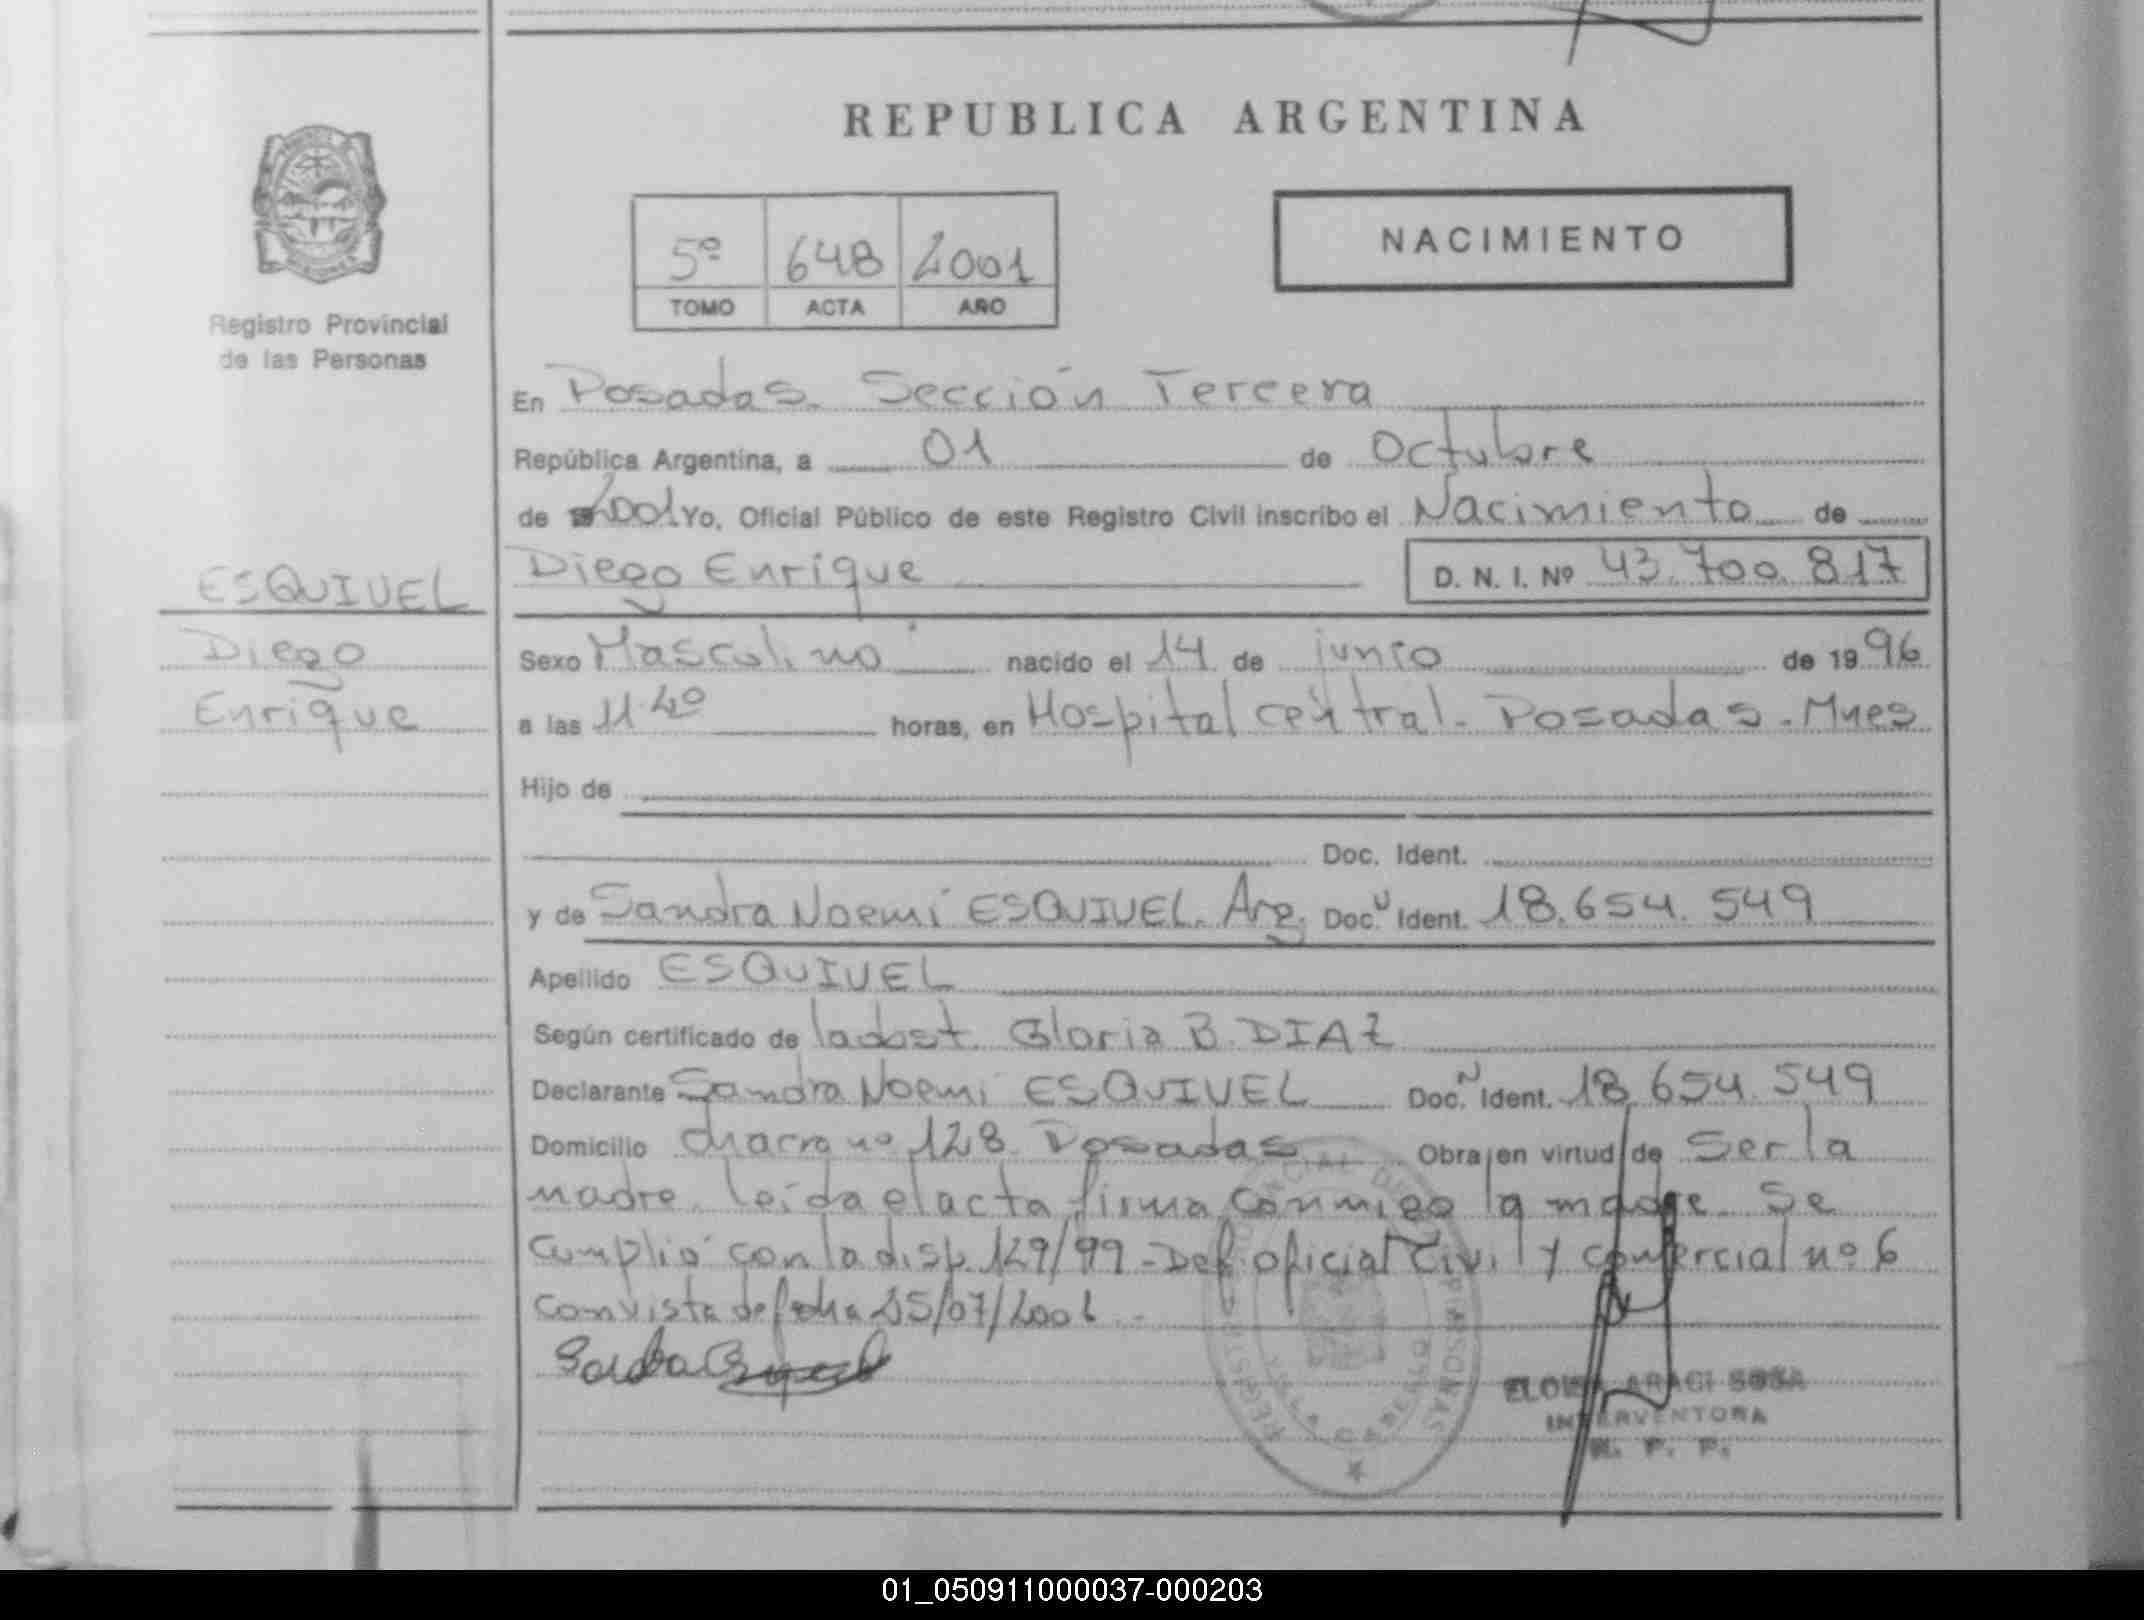 REPUBLICA ARGENTINA
5º 648 2001
TOMO ACTA AÑO
NACIMIENTO
Registro Provincial
de las Personas
En Posadas. Sección Tercera
República Argentina, a 01 de Octubre
de 2001 Yo, Oficial Público de este Registro Civil inscribo el Nacimiento de
Diego Enrique D. N. I. Nº 43.700.817
ESQUIVEL
Diego
Enrique
Sexo Masculino nacido el 14 de junio de 1996
a las 11.40 horas, en Hospital central. Posadas. Mnes
Hijo de
Doc. Ident.
y de Sandra Noemí ESQUIVEL. Arg. Doc. Ident. 18.654.549
Apellido ESQUIVEL
Según certificado de la obst. Gloria B. DIAZ
Declarante Sandra Noemi ESQUIVEL Doc. Ident. 18.654.549
Domicilio chacra nº 128 Posadas Obra en virtud de Ser la
madre. leída el acta firma conmigo la madre. Se
cumplió con la disp. 129/99 - Def. oficial Civil y comercial nº 6
con vista de fecha 25/07/2001.-
ELOISA ARACI SOSA
INTERVENTORA
R. P. P.
01_050911000037-000203